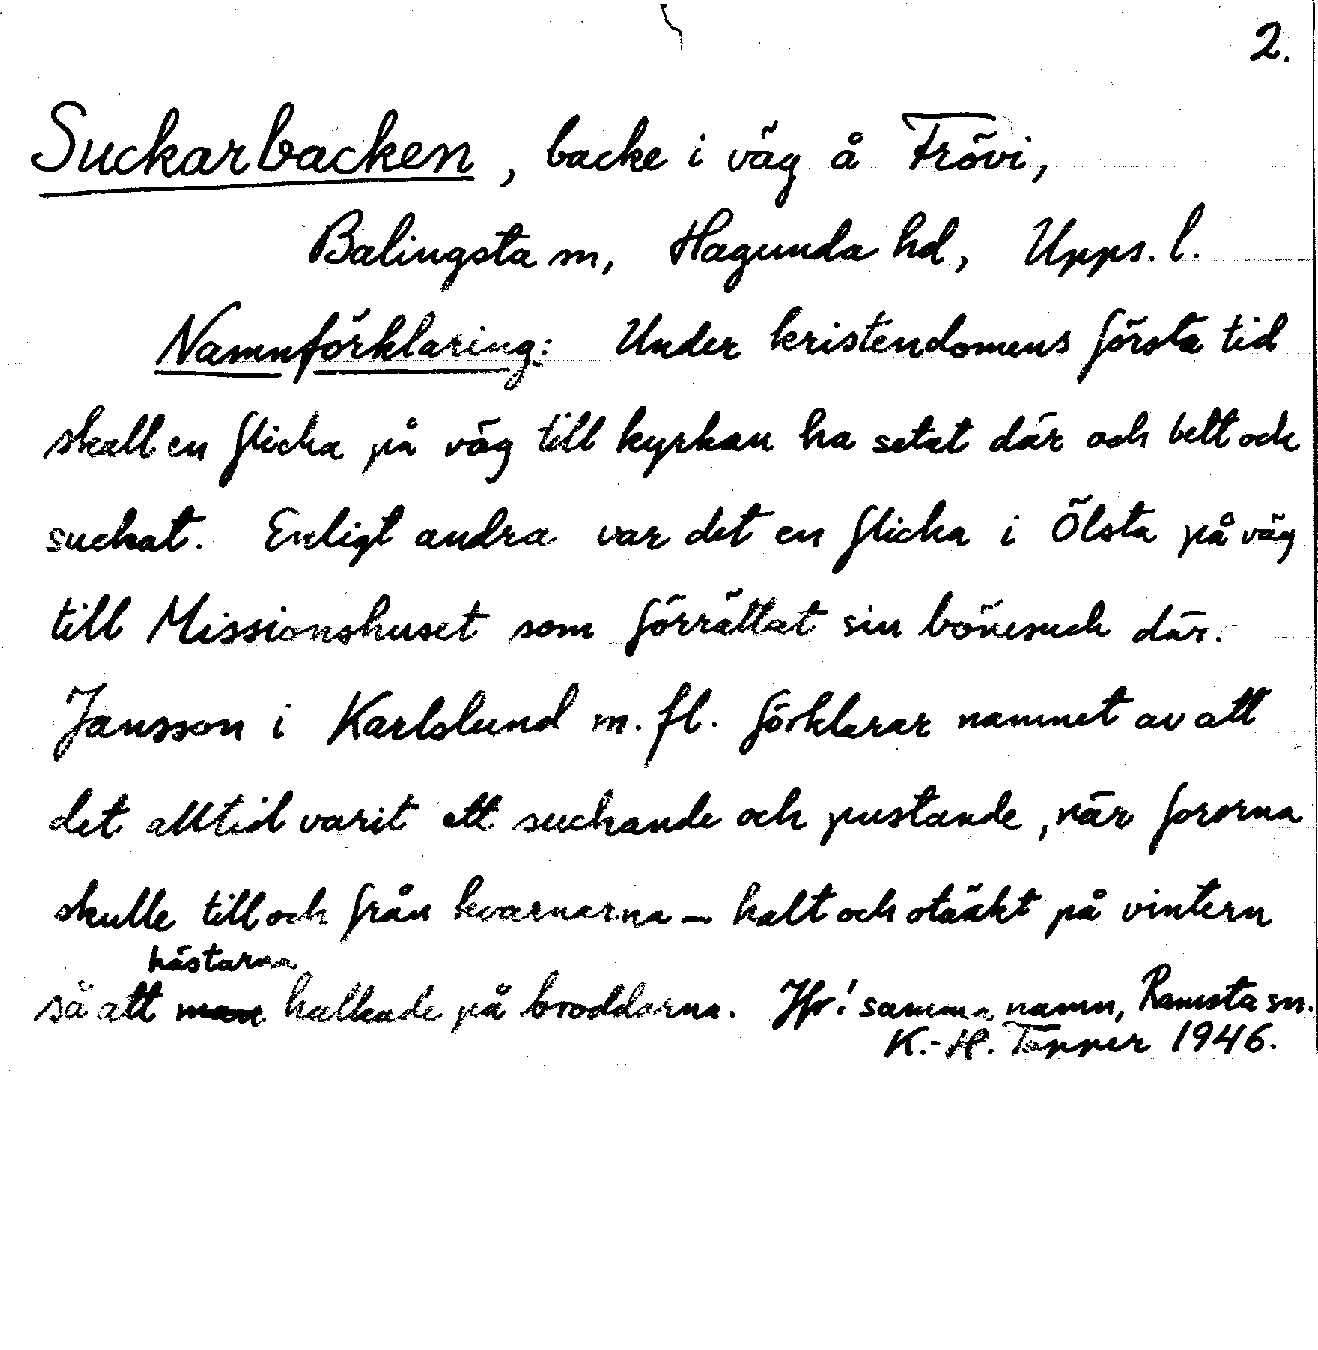 2.
Suckarbacken, backe i väg å Frövi,
Balingsta sn, Hagunda hd, Upps. l.
Namnförklaring: Under kristendomens första tid
skall en flicka på väg till kyrkan ha setat där och bett och
suckat. Enligt andra var det en flicka i Ölsta på väg
till Missionshuset som förrättat sin bönesuck där.
Jansson i Karlslund m.fl. förklarar namnet av att
det alltid varit ett suckande och pustande, när fororna
skulle till och från kvarnarna – halt och otäkt på vintern
hästarna
så att man halkade på broddarna. Jfr! samma namn, Ramsta sn.
K.-H. Tapper 1946.